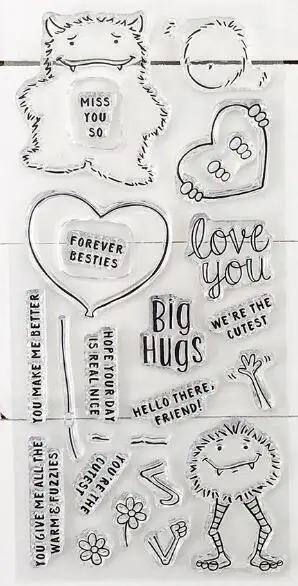 MISS
YOU
SO
FOREVER
BESTIES
love
you
Big
Hugs
WE'RE THE
CUTEST
YOU MAKE ME BETTER
HOPE YOUR DAY
IS REAL NICE
HELLO THERE,
FRIEND!
YOU GIVE ME ALL THE
WARM & FUZZIES
YOU'RE THE
CUTEST